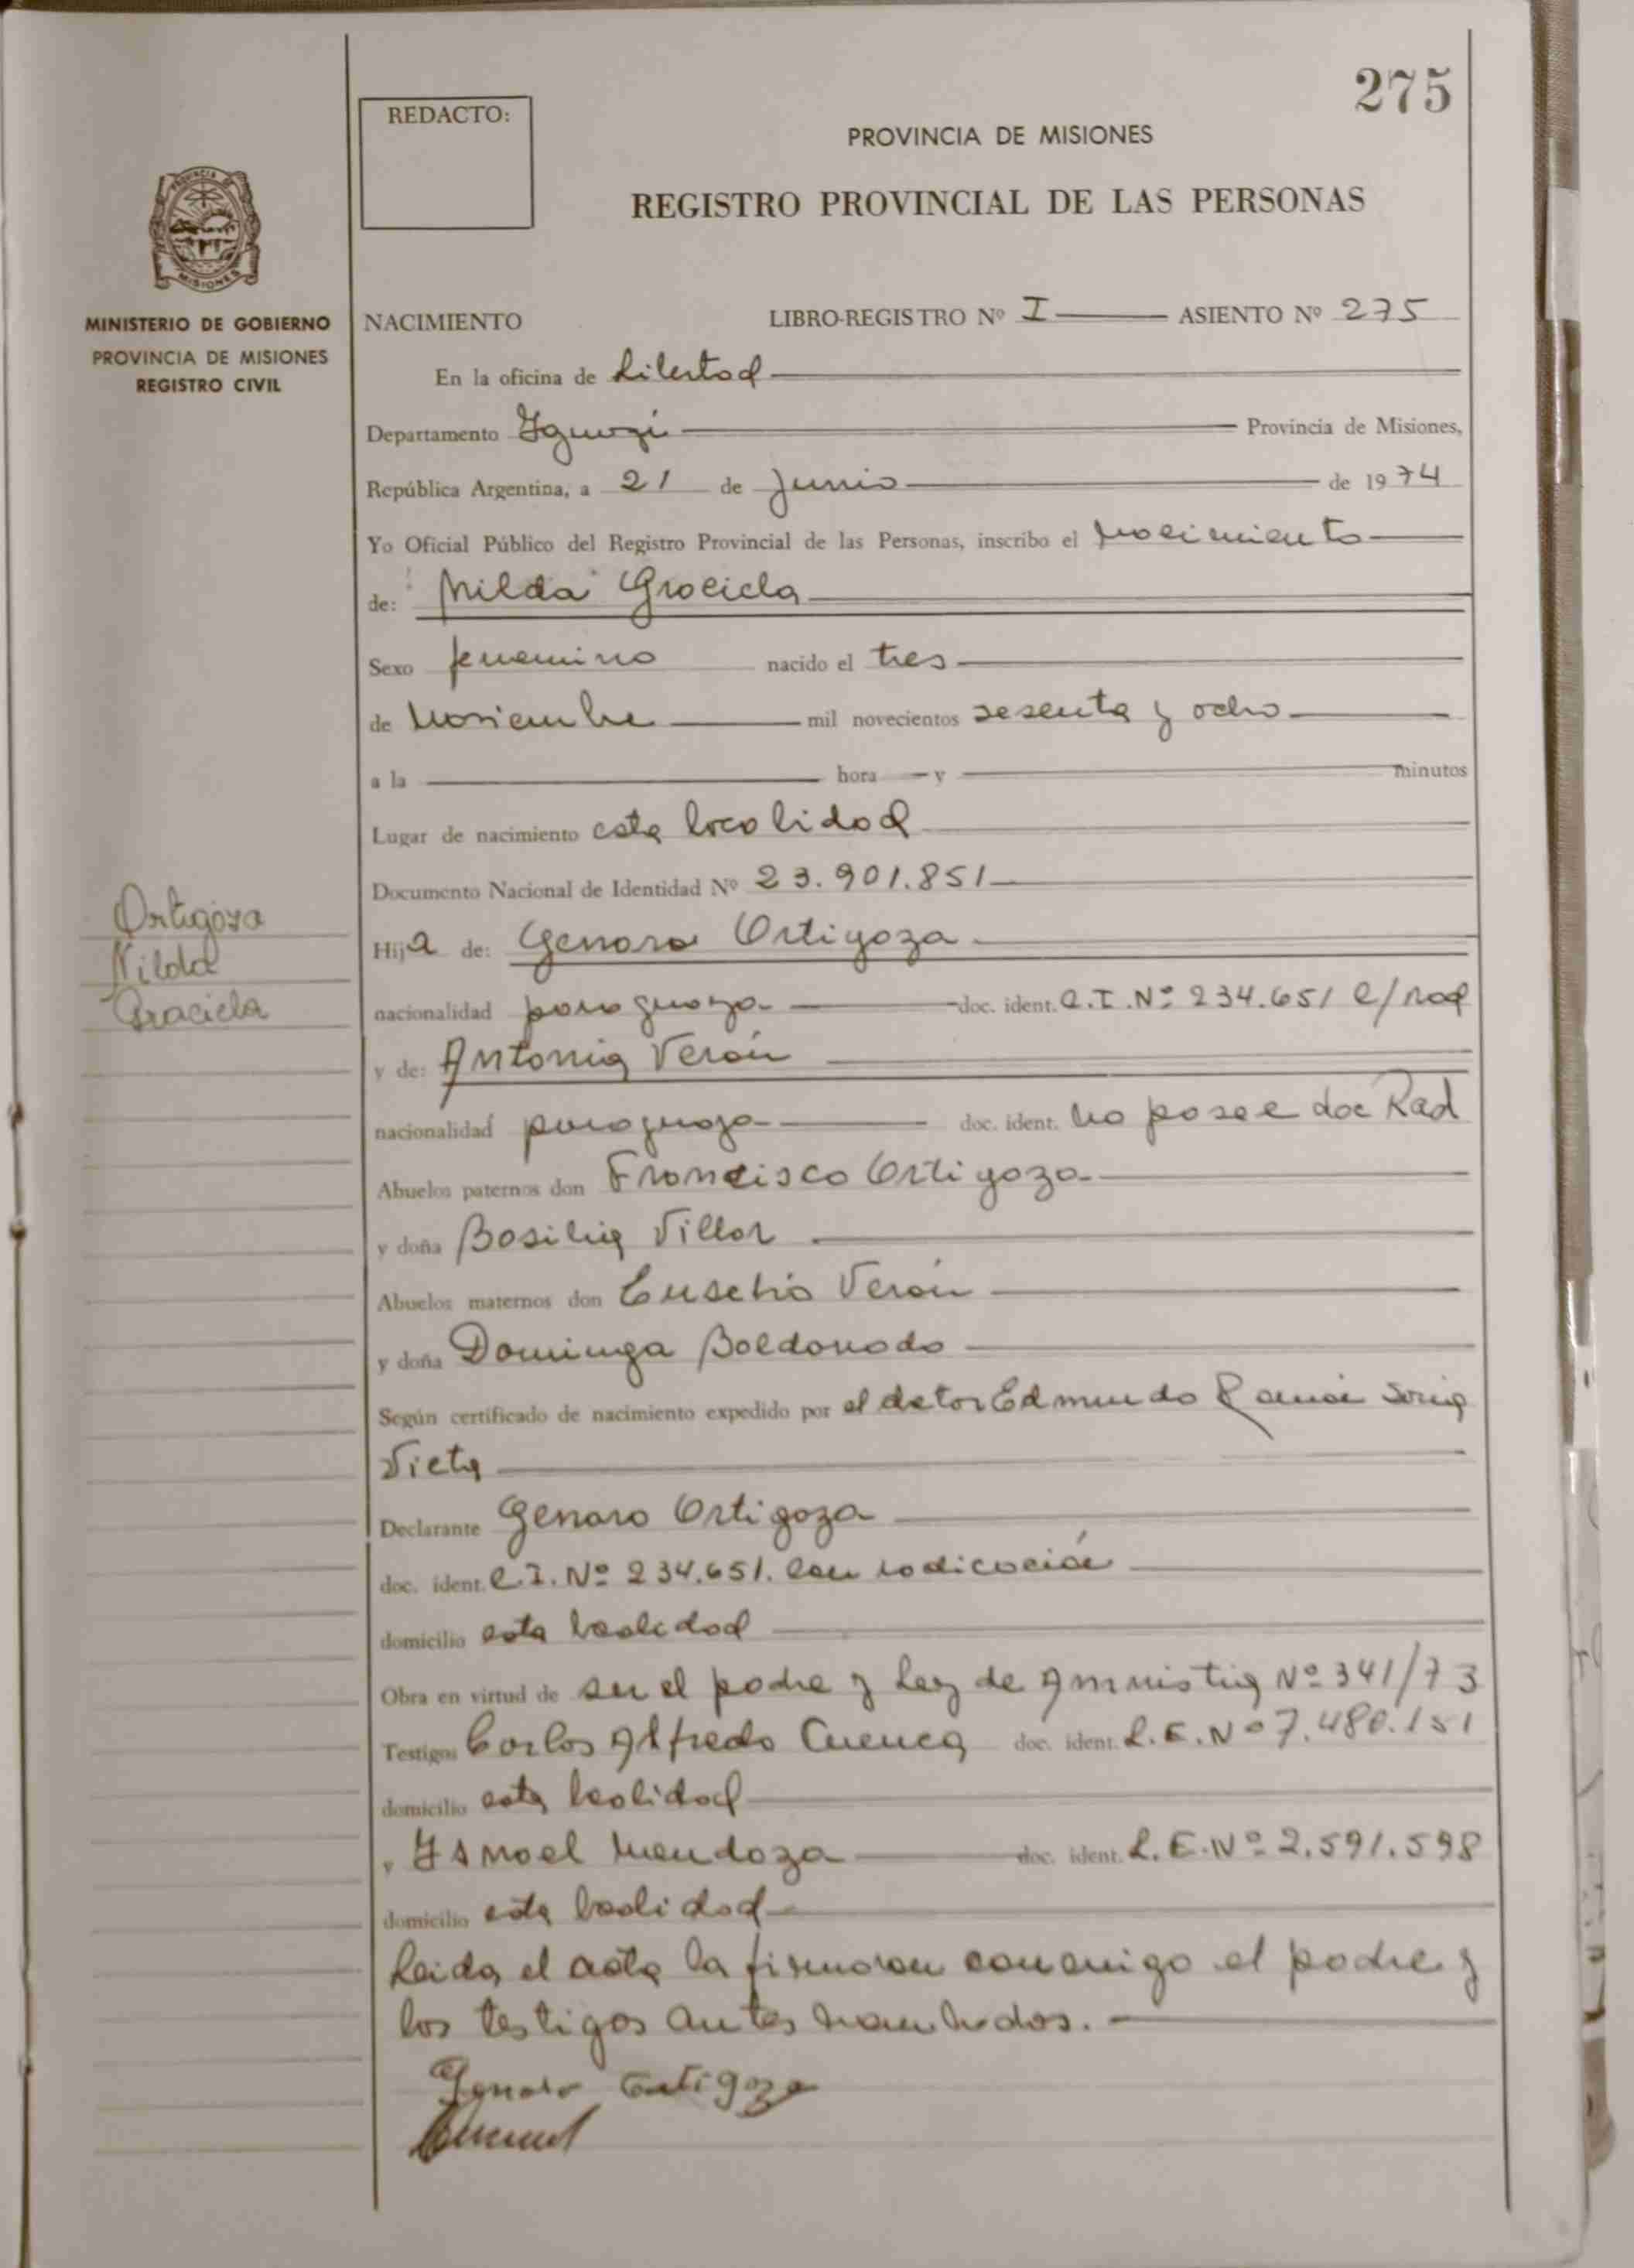 275
REDACTO:
PROVINCIA DE MISIONES
REGISTRO PROVINCIAL DE LAS PERSONAS
PROVINCIA DE
MISIONES
MINISTERIO DE GOBIERNO
PROVINCIA DE MISIONES
REGISTRO CIVIL
NACIMIENTO LIBRO-REGISTRO Nº I ASIENTO Nº 275
En la oficina de Libertad
Departamento Iguazú Provincia de Misiones,
República Argentina, a 21 de Junio de 1974
Yo Oficial Público del Registro Provincial de las Personas, inscribo el nacimiento
de: Nilda Graciela
Sexo femenino nacido el tres
de Noviembre mil novecientos sesenta y ocho
a la hora y minutos
Lugar de nacimiento esta localidad
Documento Nacional de Identidad Nº 23.901.851
Ortigoza
Nilda
Graciela
Hija de: Genaro Ortigoza
nacionalidad paraguaya doc. ident. C.I.Nº 234.651 c/rad
y de: Antonia Verón
nacionalidad paraguaya doc. ident. no posee doc Rad
Abuelos paternos don Francisco Ortigoza
y doña Basilia Villar
Abuelos maternos don Eusebio Verón
y doña Dominga Baldonado
Según certificado de nacimiento expedido por el doctor Edmundo Ramón Soria
Vieta
Declarante Genaro Ortigoza
doc. ident. C.I. Nº 234.651. con radicación
domicilio esta localidad
Obra en virtud de ser el padre y Ley de Amnistia Nº 341/73
Testigos Carlos Alfredo Cuenca doc. ident. L.E. Nº 7.480.151
domicilio esta localidad
y Ismael Mendoza doc. ident. L.E.Nº 2.591.598
domicilio esta localidad
Leida el acta la firmaron conmigo el padre y
los testigos antes nombrados.
Genaro Ortigoza